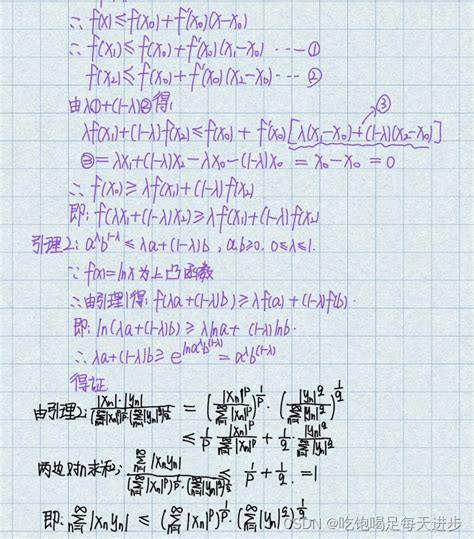 ∴ f(x) ≤ f(x₀) + f'(x₀)(x-x₀)
∴ f(x₁) ≤ f(x₀) + f'(x₀)(x₁-x₀) ··· ①
f(x₂) ≤ f(x₀) + f'(x₀)(x₂-x₀) ··· ②
由λ①+(1-λ)②得:
③
λf(x₁)+(1-λ)f(x₂) ≤ f(x₀) + f'(x₀)[λ(x₁-x₀)+(1-λ)(x₂-x₀)]
③ = λx₁+(1-λ)x₂-λx₀-(1-λ)x₀ = x₀-x₀ = 0
∴ f(x₀) ≥ λf(x₁)+(1-λ)f(x₂)
即: f(λx₁+(1-λ)x₂) ≥ λf(x₁)+(1-λ)f(x₂)
引理2: a^λ b^(1-λ) ≤ λa+(1-λ)b , a,b≥0. 0≤λ≤1.
∵ f(x)=lnx 为上凸函数
∴由引理1得: f(λa+(1-λ)b) ≥ λf(a) + (1-λ)f(b).
即: ln(λa+(1-λ)b) ≥ λlna + (1-λ)lnb.
∴ λa+(1-λ)b ≥ e^(ln a^λ b^(1-λ)) = a^λ b^(1-λ)
得证
由引理2: |xₙ|·|yₙ| / ((∑_{n=1}^∞ |xₙ|^p)^(1/p) (∑_{n=1}^∞ |yₙ|^q)^(1/q)) = (|xₙ|^p / ∑_{n=1}^∞ |xₙ|^p)^(1/p) · (|yₙ|^q / ∑_{n=1}^∞ |yₙ|^q)^(1/q)
≤ 1/p · |xₙ|^p / ∑_{n=1}^∞ |xₙ|^p + 1/q · |yₙ|^q / ∑_{n=1}^∞ |yₙ|^q
两边对n求和: ∑_{n=1}^∞ |xₙyₙ| / ((∑_{n=1}^∞ |xₙ|^p)^(1/p) · (∑_{n=1}^∞ |yₙ|^q)^(1/q)) ≤ 1/p + 1/q = 1
即: ∑_{n=1}^∞ |xₙyₙ| ≤ (∑_{n=1}^∞ |xₙ|^p)^(1/p) · (∑_{n=1}^∞ |yₙ|^q)^(1/q)
CSDN @吃饱喝足每天进步